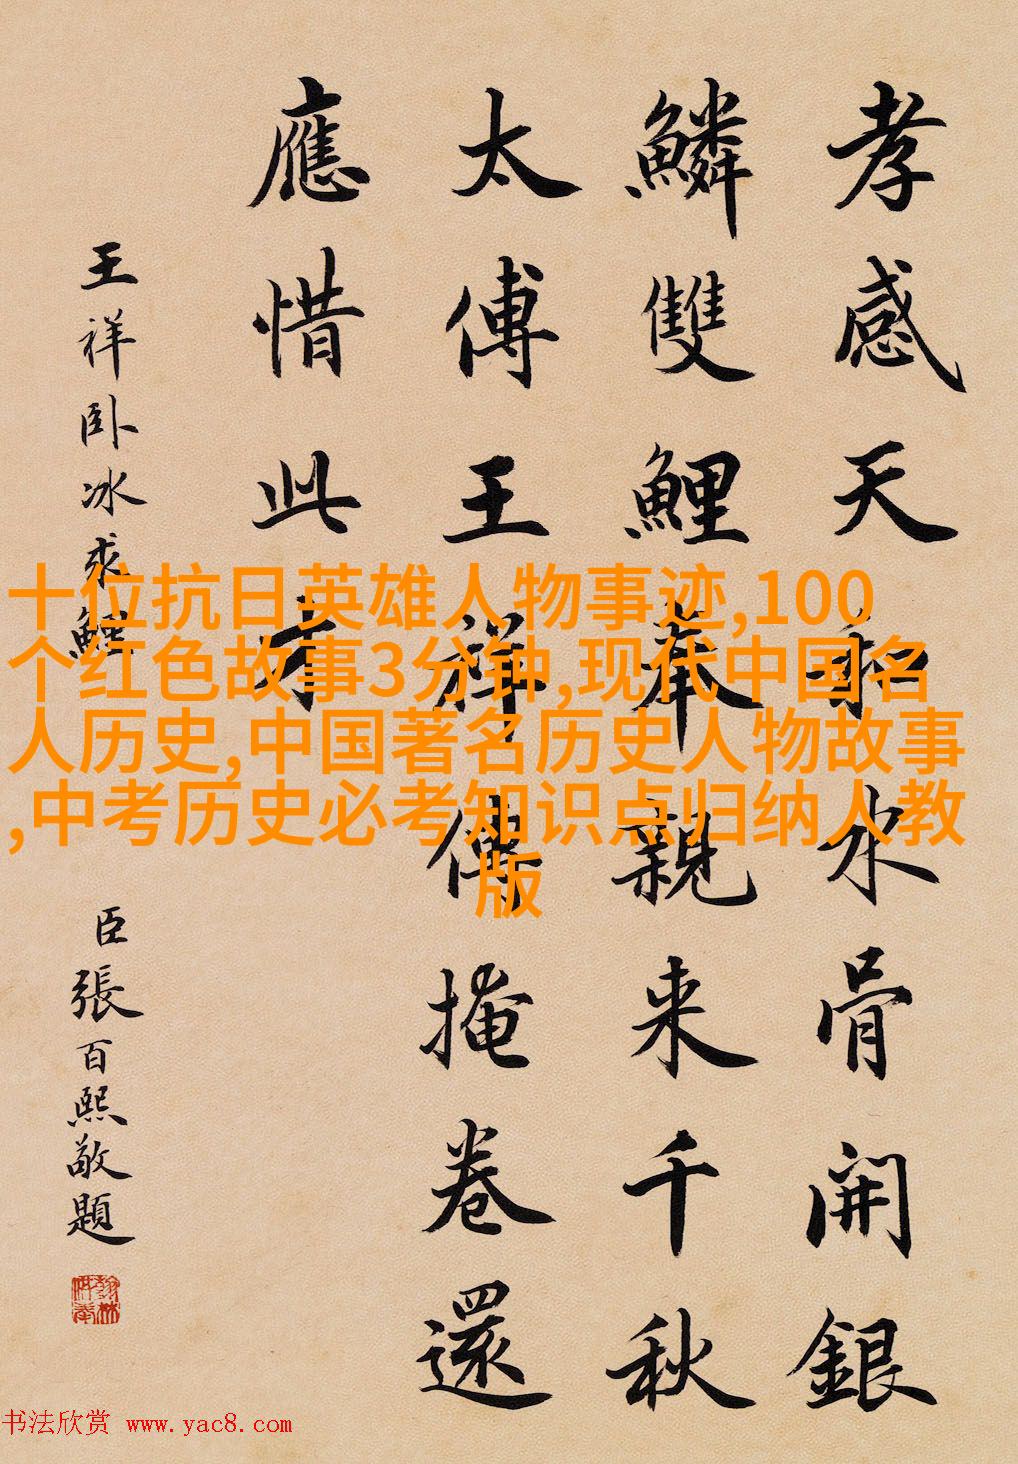 孝感天水骨開銀
鱗雙鯉奉親来千秋
太傅王祥傳掩卷還
應惜此才
王祥卧冰求鯉
臣張百熙敬題
十位抗日英雄人物事迹,100
个红色故事3分钟,现代中国名
人历史,中国著名历史人物故事
,中考历史必考知识点归纳人教
版
书法欣赏 www.yac8.com